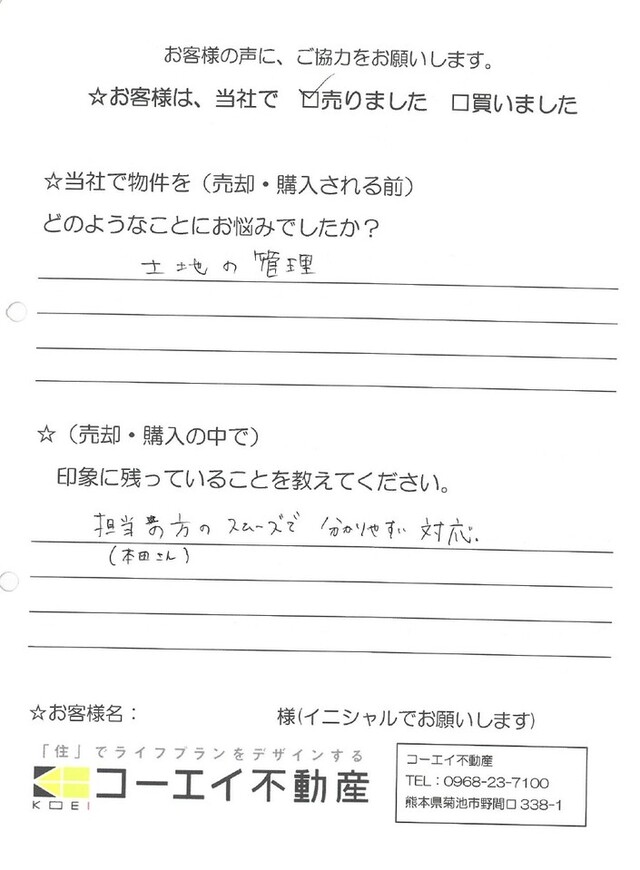 お客様の声に、ご協力をお願いします。
☆お客様は、当社で ☑売りました □買いました
☆当社で物件を（売却・購入される前）
どのようなことにお悩みでしたか？
土地の管理
☆（売却・購入の中で）
印象に残っていることを教えてください。
担当の方のスムーズで分かりやすい対応.
（本田さん）
☆お客様名： 様(イニシャルでお願いします)
「住」でライフプランをデザインする
KOEI コーエイ不動産
コーエイ不動産
TEL：0968-23-7100
熊本県菊池市野間口338-1